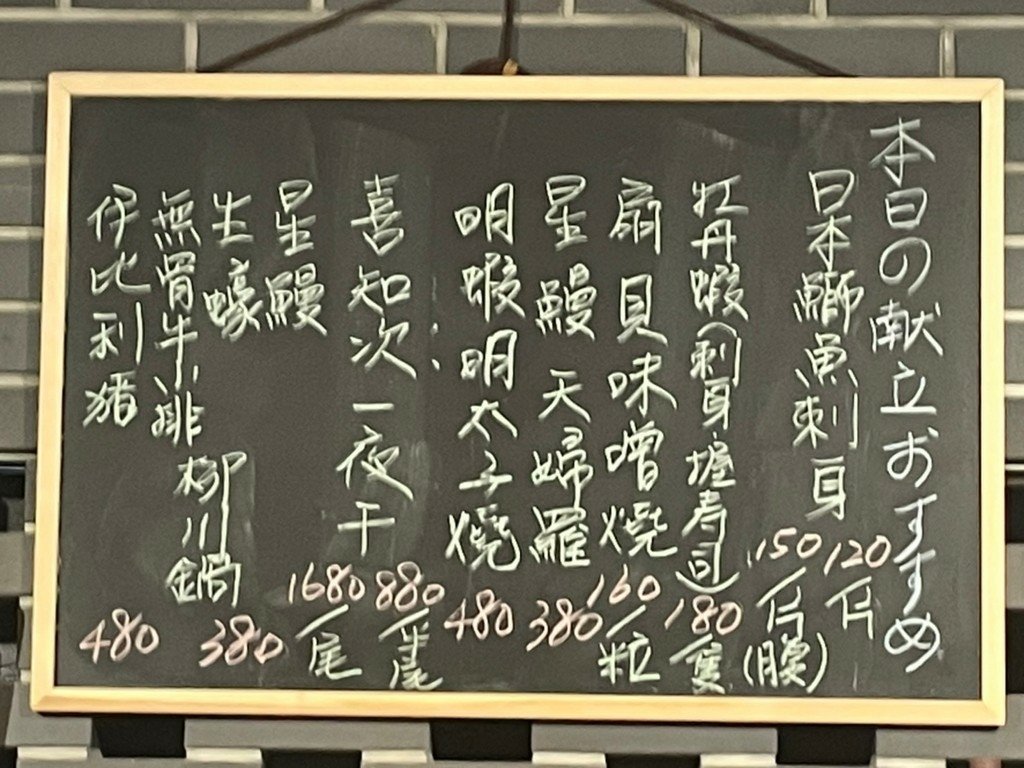 本日の献立おすすめ
日本鰤魚刺身 120/片
150/片(腹)
牡丹蝦(刺身握寿司) 180/隻
扇貝味噌燒 160/粒
星鰻天婦羅 380
明蝦明太子燒 480
喜知次一夜干 880/半尾
1680/尾
星鰻
生蠔 柳川鍋 380
無骨牛小排
伊比利豬 480